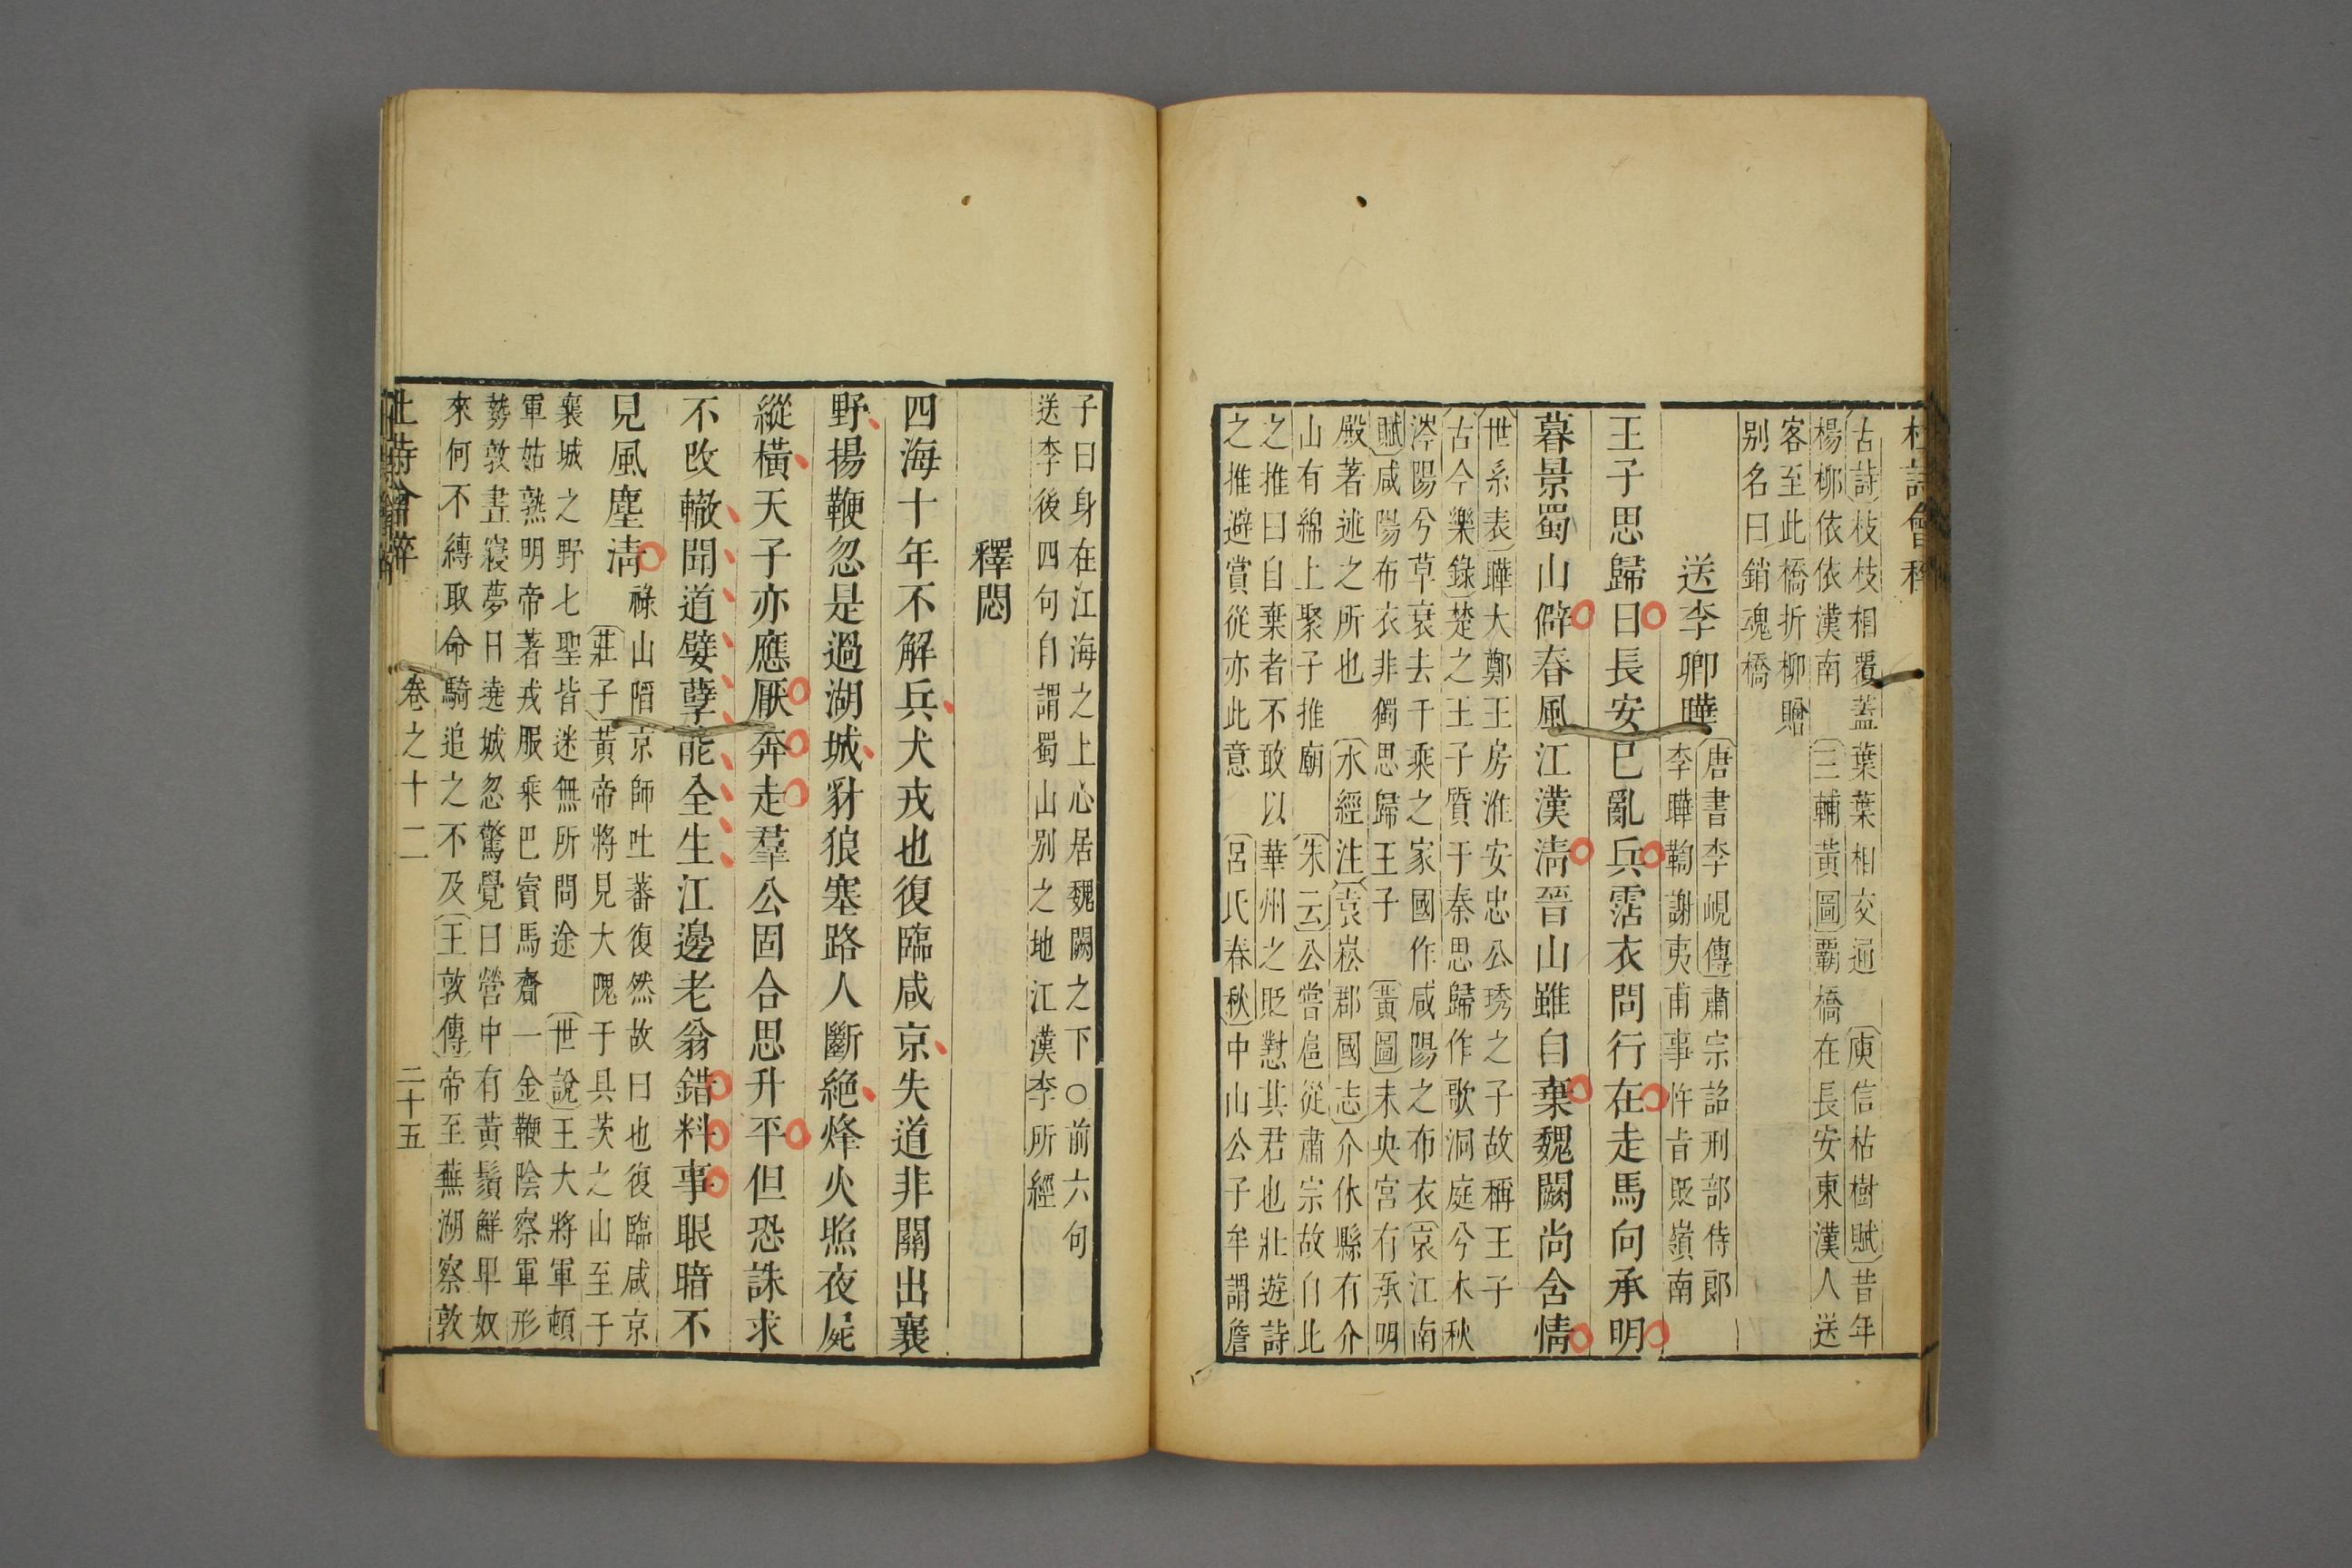 杜詩會稡
古詩枝枝相覆蓋葉葉相交通　庾信枯樹賦昔年
楊柳依依漢南　三輔黃圖霸橋在長安東漢人送
客至此橋折柳贈
别名曰銷魂橋
送李卿曄
唐書李峴傳肅宗詔刑部侍郎
李曄鞫謝夷甫事忤旨貶嶺南
王子思歸日長安已亂兵霑衣問行在走馬向承明
暮景蜀山僻春風江漢清晉山雖自棄魏闕尚含情
世系表曄大鄭王房淮安忠公琇之子故稱王子
古今樂錄楚之王子質于秦思歸作歌洞庭兮木秋
涔陽兮草衰去千乘之家國作咸陽之布衣　哀江南
賦咸陽布衣非獨思歸王子　黃圖未央宮有承明
殿著述之所也　水經注袁崧郡國志介休縣有介
山有綿上聚子推廟　朱云公嘗扈從肅宗故自比
之推曰自棄者不敢以華州之貶懟其君也壯遊詩
之推避賞從亦此意　呂氏春秋中山公子牟謂詹
子曰身在江海之上心居魏闕之下○前六句
送李後四句自謂蜀山别之地江漢李所經
釋悶
四海十年不解兵犬戎也復臨咸京失道非關出襄
野揚鞭忽是過湖城豺狼塞路人斷絕烽火照夜屍
縱橫天子亦應厭奔走羣公固合思升平但恐誅求
不改轍聞道嬖孽能全生江邊老翁錯料事眼暗不
見風塵清
祿山陷京師吐蕃復然故曰也復臨咸京
莊子黃帝將見大隗于具茨之山至于
襄城之野七聖皆迷無所問途　世說王大將軍頓
軍姑熟明帝著戎服乘巴賨馬齎一金鞭陰察軍形
勢敦晝寢夢日遶城忽驚覺曰營中有黃鬚鮮卑奴
來何不縛取命騎追之不及王敦傳帝至蕪湖察敦
杜詩會稡　卷之十二　二十五